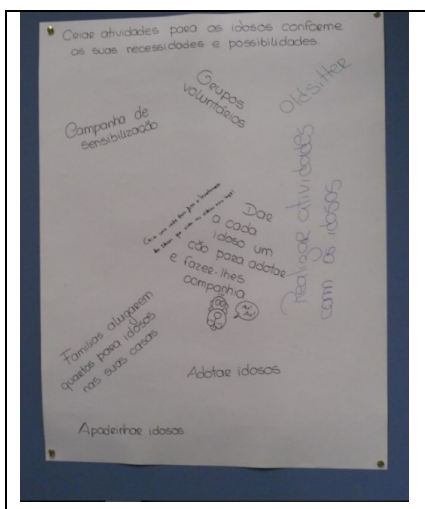 Criar atividades para os idosos conforme
as suas necessidades e possibilidades.
Grupos
voluntários
Oldsitter
Campanha de
sensibilização
Realizar atividades
com os idosos
Dar
a cada
idoso um
cão para adotar
e fazer-lhes
companhia
Famílias alugarem
quartos para idosos
nas suas casas
Adotar idosos
Apadrinhar idosos